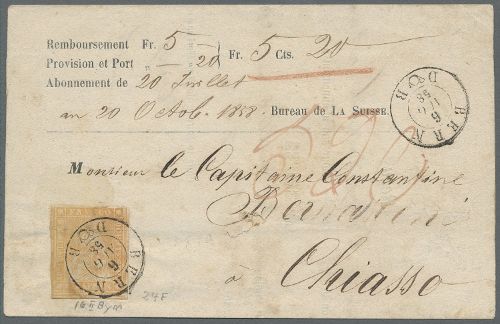 Remboursement Fr. 5
Provision et Port " — 20 Fr. 5 Cts. 20
Abonnement de 20 Juillet
au 20 Octob. 1858. Bureau de LA SUISSE.
BERN
6
58
D & B
520
Monsieur le Capitaine Constantine
Bernasconi
à Chiasso
BERN
6
58
D & B
16 II Bym 24F